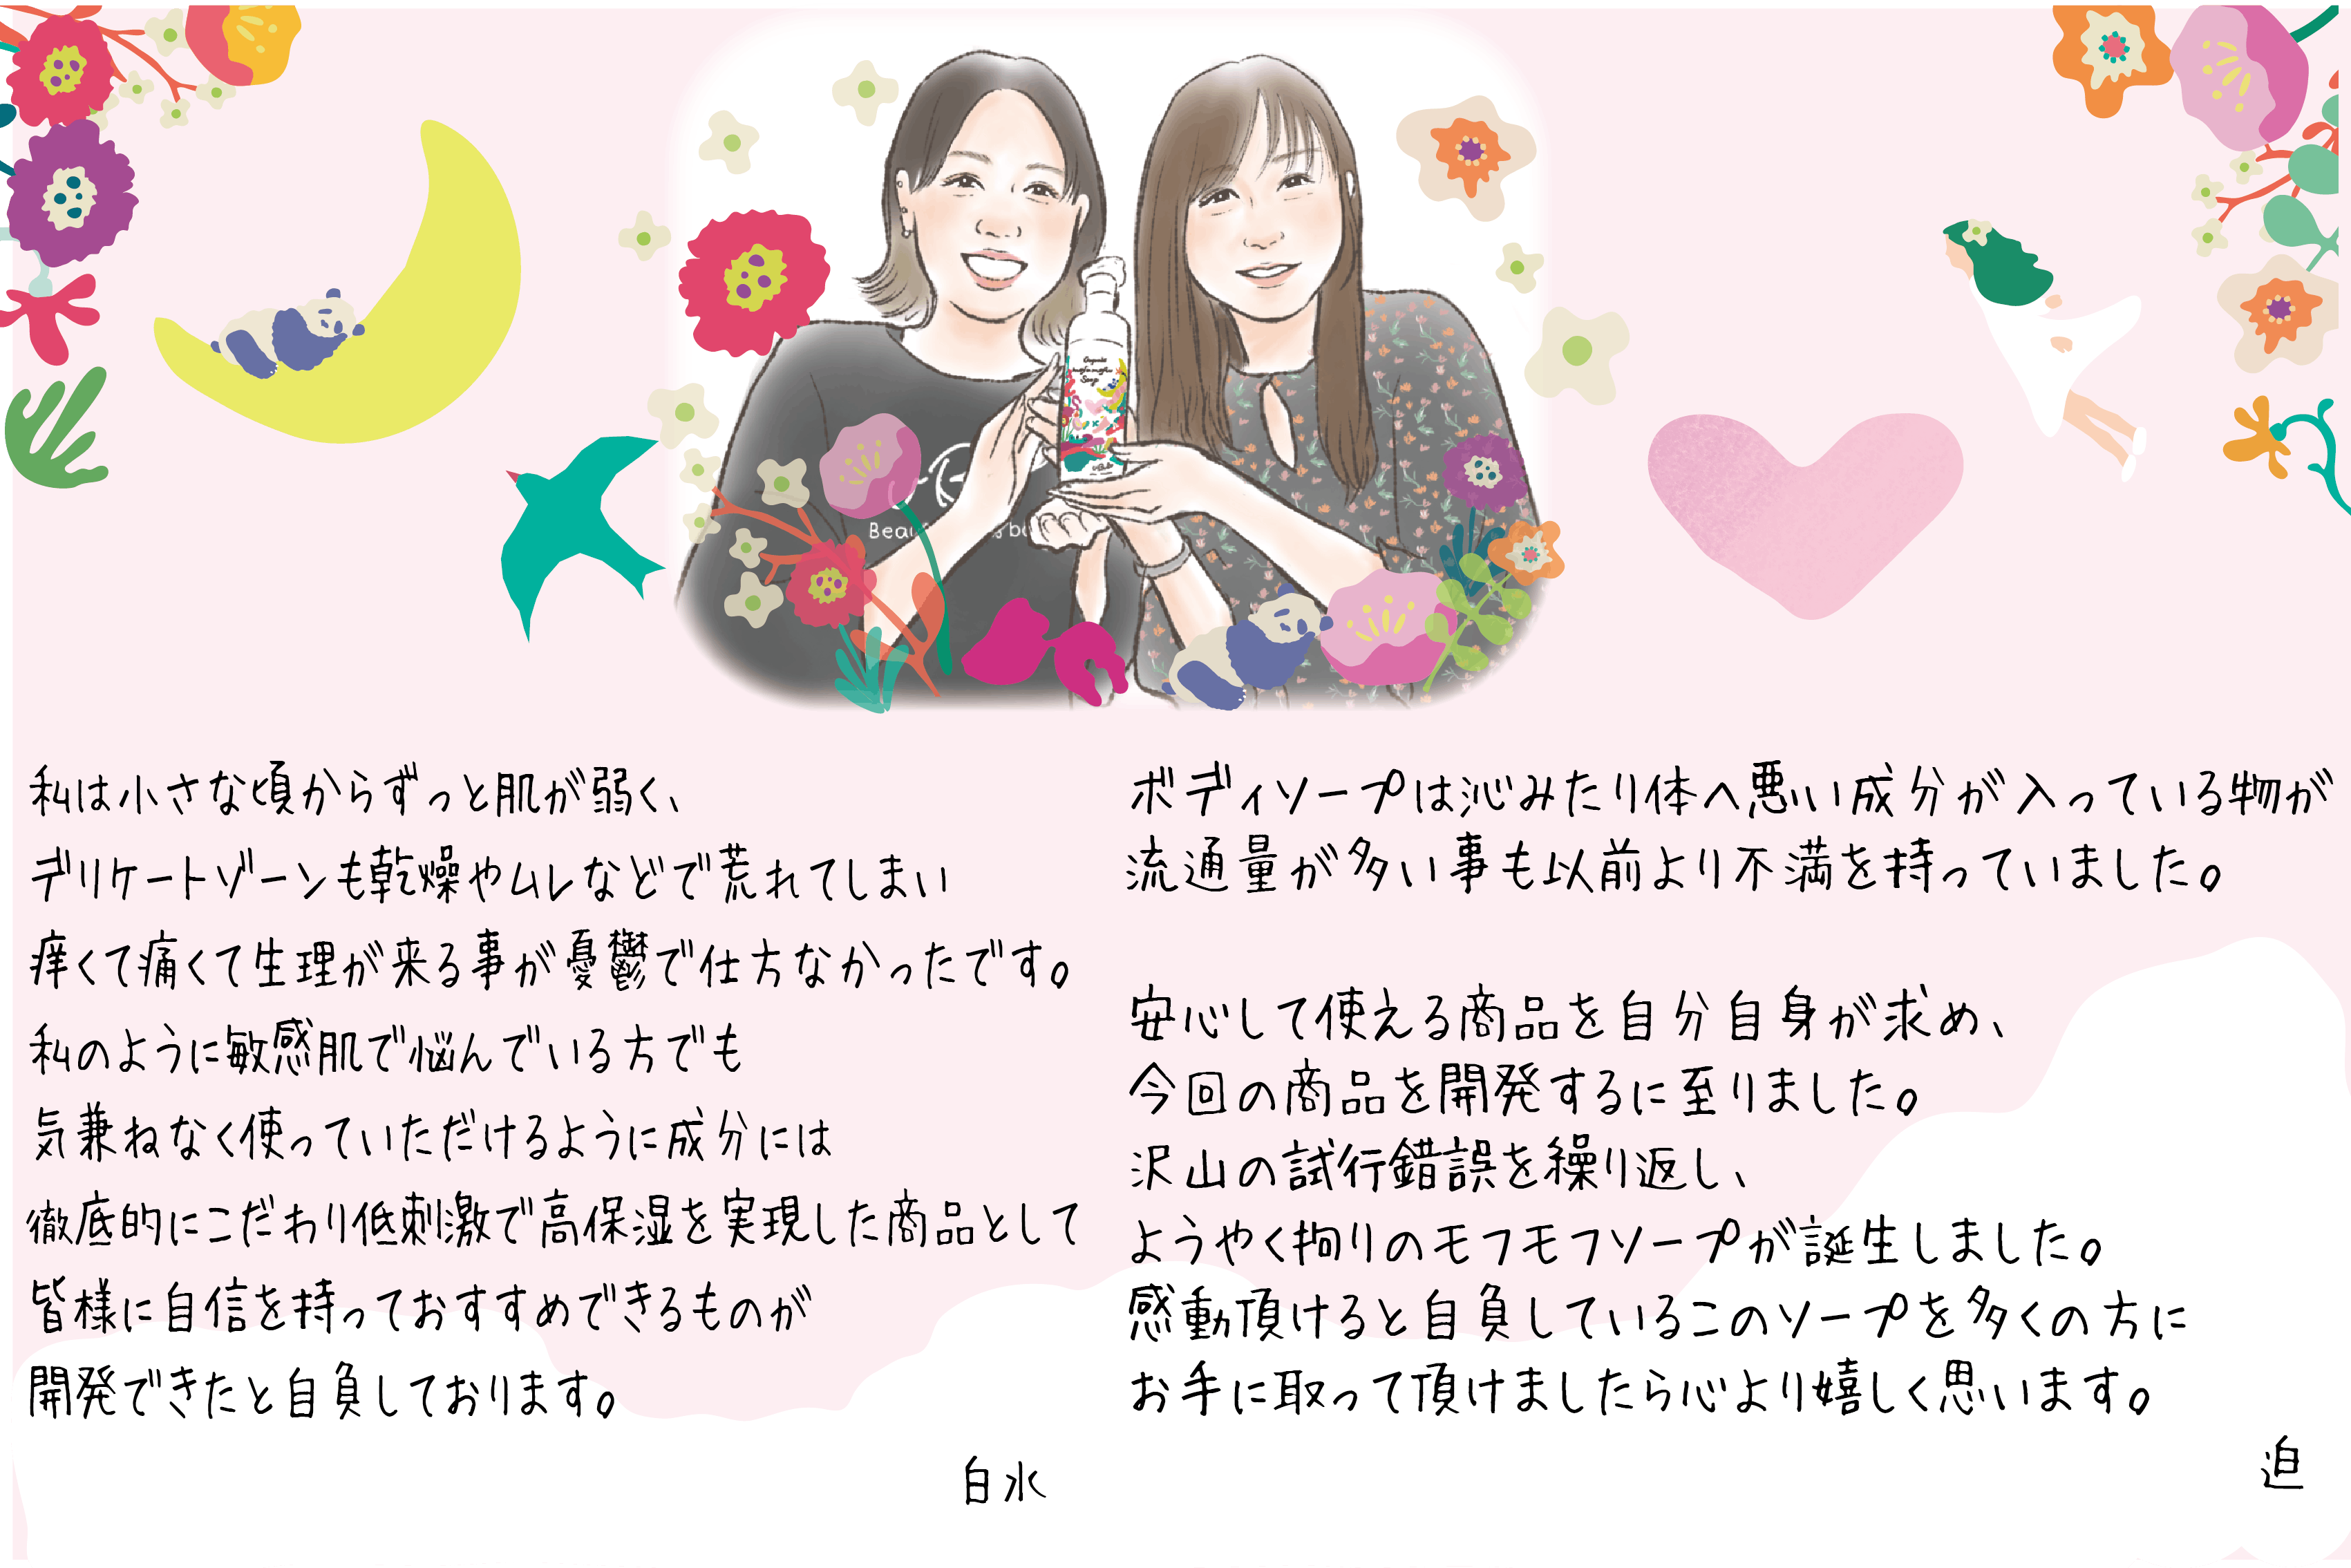 Organic
mofu mofu
Soap
私は小さな頃からずっと肌が弱く、
デリケートゾーンも乾燥やムレなどで荒れてしまい
痒くて痛くて生理が来る事が憂鬱で仕方なかったです。
私のように敏感肌で悩んでいる方でも
気兼ねなく使っていただけるように成分には
徹底的にこだわり低刺激で高保湿を実現した商品として
皆様に自信を持っておすすめできるものが
開発できたと自負しております。
白水
ボディソープは沁みたり体へ悪い成分が入っている物が
流通量が多い事も以前より不満を持っていました。
安心して使える商品を自分自身が求め、
今回の商品を開発するに至りました。
沢山の試行錯誤を繰り返し、
ようやく拘りのモフモフソープが誕生しました。
感動頂けると自負しているこのソープを多くの方に
お手に取って頂けましたら心より嬉しく思います。
迫